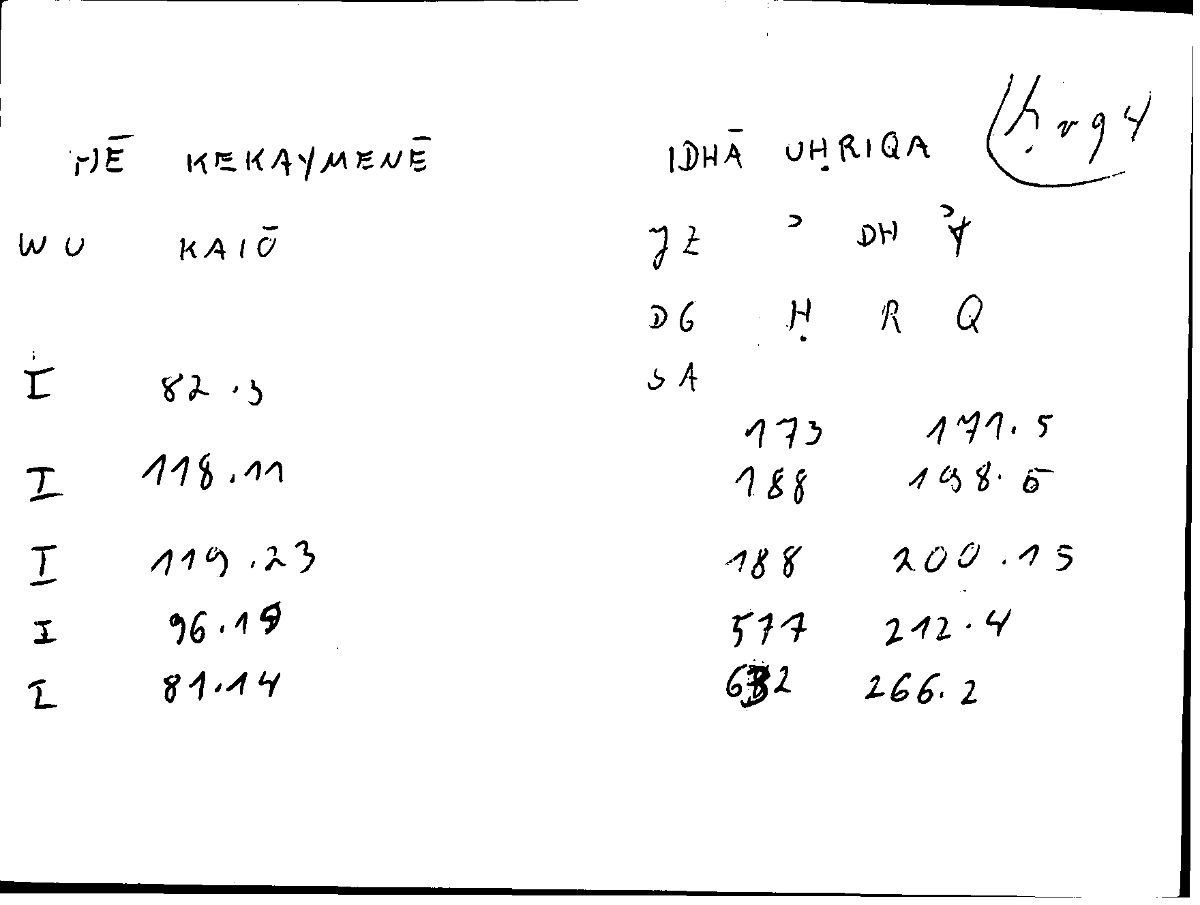 MĒ KEKAYMENĒ IDHĀ UḤRIQA ḥrq 4
WU KAIŌ JZ ʾ DH ʾ
DG Ḥ R Q
I 82.3 SA
173 171.5
I 118.11 188 198.5
I 119.23 188 200.15
I 96.19 577 212.4
I 81.14 682 266.2